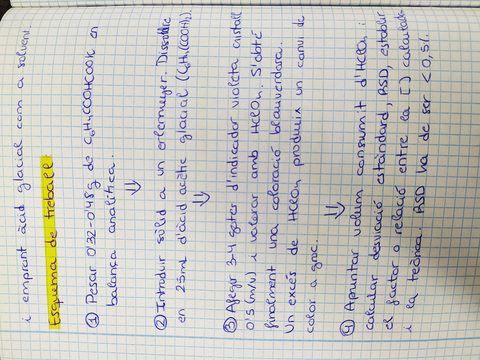 i emprant àcid glacial com a solvent.
Esquema de treball:
① Pesar 0'32-0'48g de C6H4COOHCOOK en
balança analítica.
⇓
② Introduir sòlid a un erlenmeyer. Dissoldre
en 25mL d'àcid acètic glacial (C6H4(COOH)2).
⇓
③ Afegir 3-4 gotes d'indicador violeta cristall
0'5 (m/v) i valorar amb HClO4. S'obté
finalment una coloració blauverdosa.
Un excés de HClO4 produeix un canvi de
color a groc.
⇓
④ Apuntar volum consumit d'HClO4 i
calcular desviació estàndard, RSD, establir
el factor o relació entre la [] calculada
i la teòrica. RSD ha de ser < 0,5%.